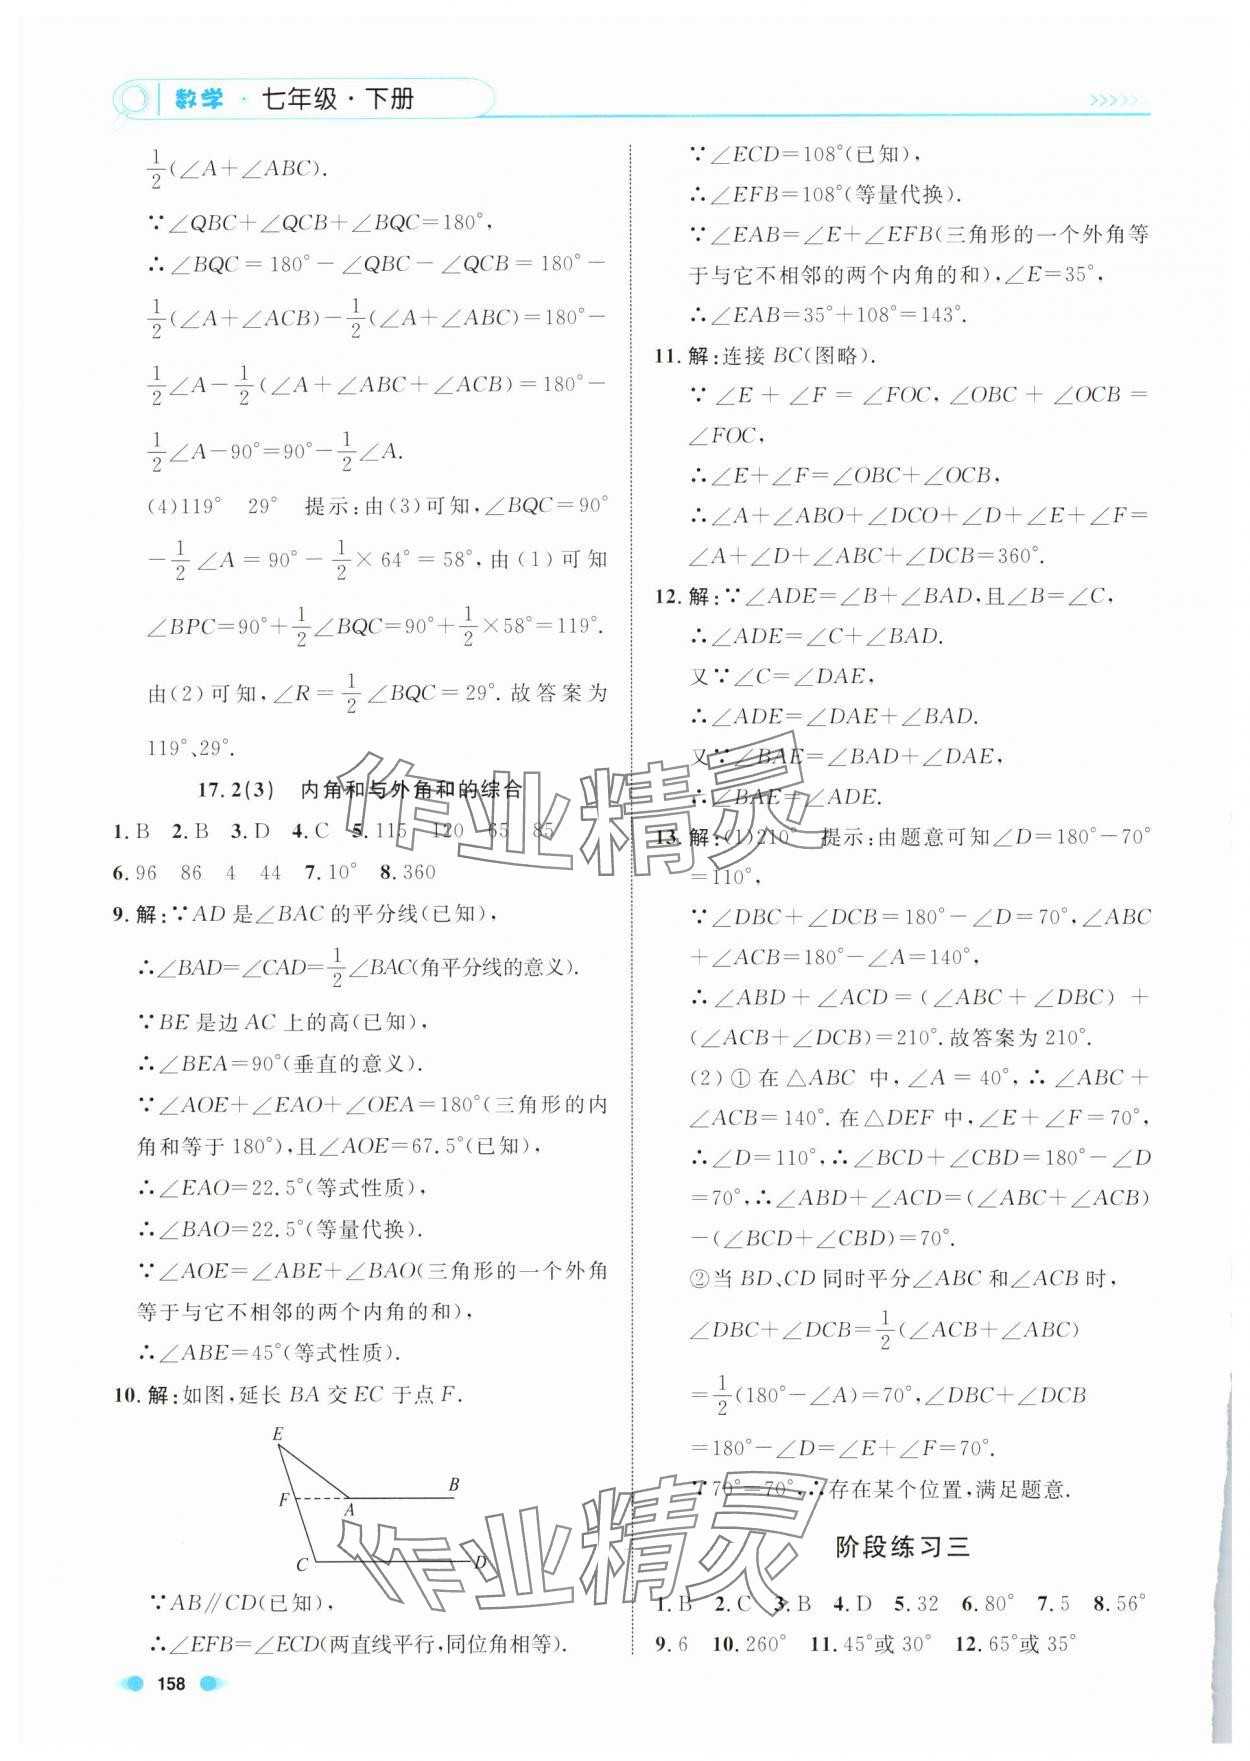 数学·七年级·下册
1/2(∠A+∠ABC).
∵∠QBC+∠QCB+∠BQC=180°,
∴∠BQC=180°-∠QBC-∠QCB=180°-
1/2(∠A+∠ACB)-1/2(∠A+∠ABC)=180°-
1/2∠A-1/2(∠A+∠ABC+∠ACB)=180°-
1/2∠A-90°=90°-1/2∠A.
(4)119° 29° 提示:由(3)可知,∠BQC=90°
-1/2∠A=90°-1/2×64°=58°,由(1)可知
∠BPC=90°+1/2∠BQC=90°+1/2×58°=119°.
由(2)可知,∠R=1/2∠BQC=29°.故答案为
119°、29°.
17.2(3) 内角和与外角和的综合
1.B 2.B 3.D 4.C 5.115 120 65 85
6.96 86 4 44 7.10° 8.360
9.解:∵AD是∠BAC的平分线(已知),
∴∠BAD=∠CAD=1/2∠BAC(角平分线的意义).
∵BE是边AC上的高(已知),
∴∠BEA=90°(垂直的意义).
∵∠AOE+∠EAO+∠OEA=180°(三角形的内
角和等于180°),且∠AOE=67.5°(已知),
∴∠EAO=22.5°(等式性质),
∴∠BAO=22.5°(等量代换).
∵∠AOE=∠ABE+∠BAO(三角形的一个外角
等于与它不相邻的两个内角的和),
∴∠ABE=45°(等式性质).
10.解:如图,延长BA交EC于点F.
E
B
F
A
C
D
∵AB∥CD(已知),
∴∠EFB=∠ECD(两直线平行,同位角相等).
∵∠ECD=108°(已知),
∴∠EFB=108°(等量代换).
∵∠EAB=∠E+∠EFB(三角形的一个外角等
于与它不相邻的两个内角的和),∠E=35°,
∴∠EAB=35°+108°=143°.
11.解:连接BC(图略).
∵∠E+∠F=∠FOC,∠OBC+∠OCB=
∠FOC,
∴∠E+∠F=∠OBC+∠OCB,
∴∠A+∠ABO+∠DCO+∠D+∠E+∠F=
∠A+∠D+∠ABC+∠DCB=360°.
12.解:∵∠ADE=∠B+∠BAD,且∠B=∠C,
∴∠ADE=∠C+∠BAD.
又∵∠C=∠DAE,
∴∠ADE=∠DAE+∠BAD.
又∵∠BAE=∠BAD+∠DAE,
∴∠BAE=∠ADE.
13.解:(1)210° 提示:由题意可知∠D=180°-70°
=110°,
∵∠DBC+∠DCB=180°-∠D=70°,∠ABC
+∠ACB=180°-∠A=140°,
∴∠ABD+∠ACD=(∠ABC+∠DBC)+
(∠ACB+∠DCB)=210°.故答案为210°.
(2)①在△ABC中,∠A=40°,∴∠ABC+
∠ACB=140°.在△DEF中,∠E+∠F=70°,
∴∠D=110°,∴∠BCD+∠CBD=180°-∠D
=70°,∴∠ABD+∠ACD=(∠ABC+∠ACB)
-(∠BCD+∠CBD)=70°.
②当BD、CD同时平分∠ABC和∠ACB时,
∠DBC+∠DCB=1/2(∠ACB+∠ABC)
=1/2(180°-∠A)=70°,∠DBC+∠DCB
=180°-∠D=∠E+∠F=70°.
∵70°=70°,∴存在某个位置,满足题意.
阶段练习三
1.B 2.C 3.B 4.D 5.32 6.80° 7.5 8.56°
9.6 10.260° 11.45°或30° 12.65°或35°
158
作业精灵
作业精灵